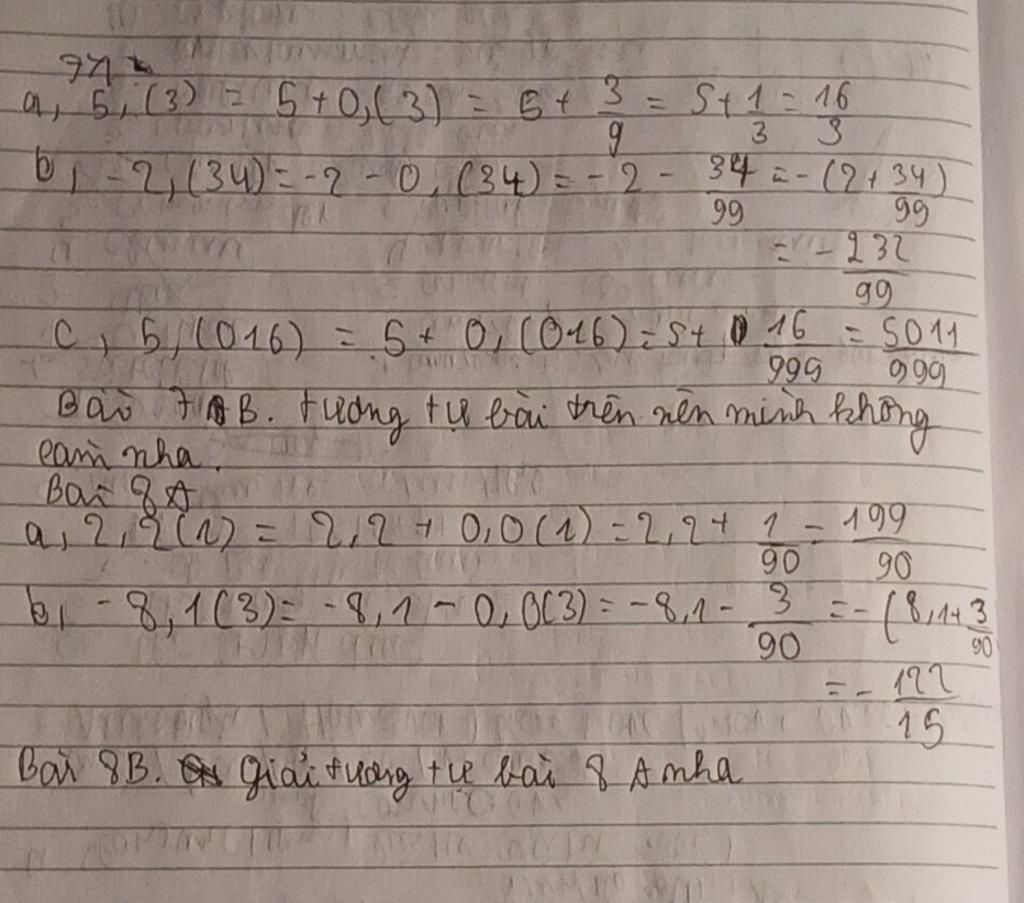 a, 5,(3) = 5+0,(3) = 5+ 3/9 = 5+ 1/3 = 16/3
b, -2,(34) = -2 - 0,(34) = -2 - 34/99 = -(2+ 34/99)
= - 232/99
c, 5,(016) = 5+ 0,(016) = 5+ 16/999 = 5011/999
Bài 7B. tương tự bài trên nên mình không
làm nha.
Bài 8A
a, 2,2(1) = 2,2 + 0,0(1) = 2,2 + 1/90 = 199/90
b, -8,1(3) = -8,1 - 0,0(3) = -8,1 - 3/90 = -(8,1+ 3/90
= - 122/15
Bài 8B. Giải tương tự bài 8A nha